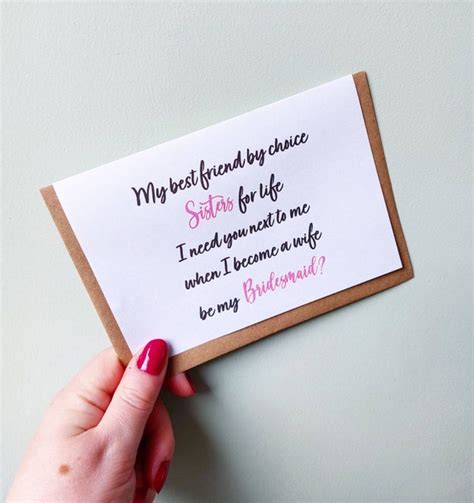 My best friend by choice
Sisters for life
I need you next to me
when I become a wife
be my Bridesmaid?